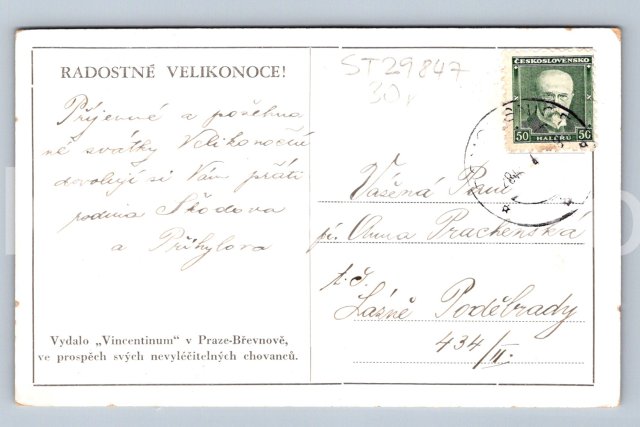 RADOSTNÉ VELIKONOCE!
Příjemné a požehna
né svátky Velikonoční
dovolují si Vám přáti
rodina Škodova
a Přihylova
Vydalo „Vincentinum" v Praze-Břevnově,
ve prospěch svých nevyléčitelných chovanců.
ST29847
30,
ČESKOSLOVENSKO
50 50
HALÉŘŮ
Vážená Paní
pí. Anna Prachenská
t.č.
Lázně Poděbrady
434/II.